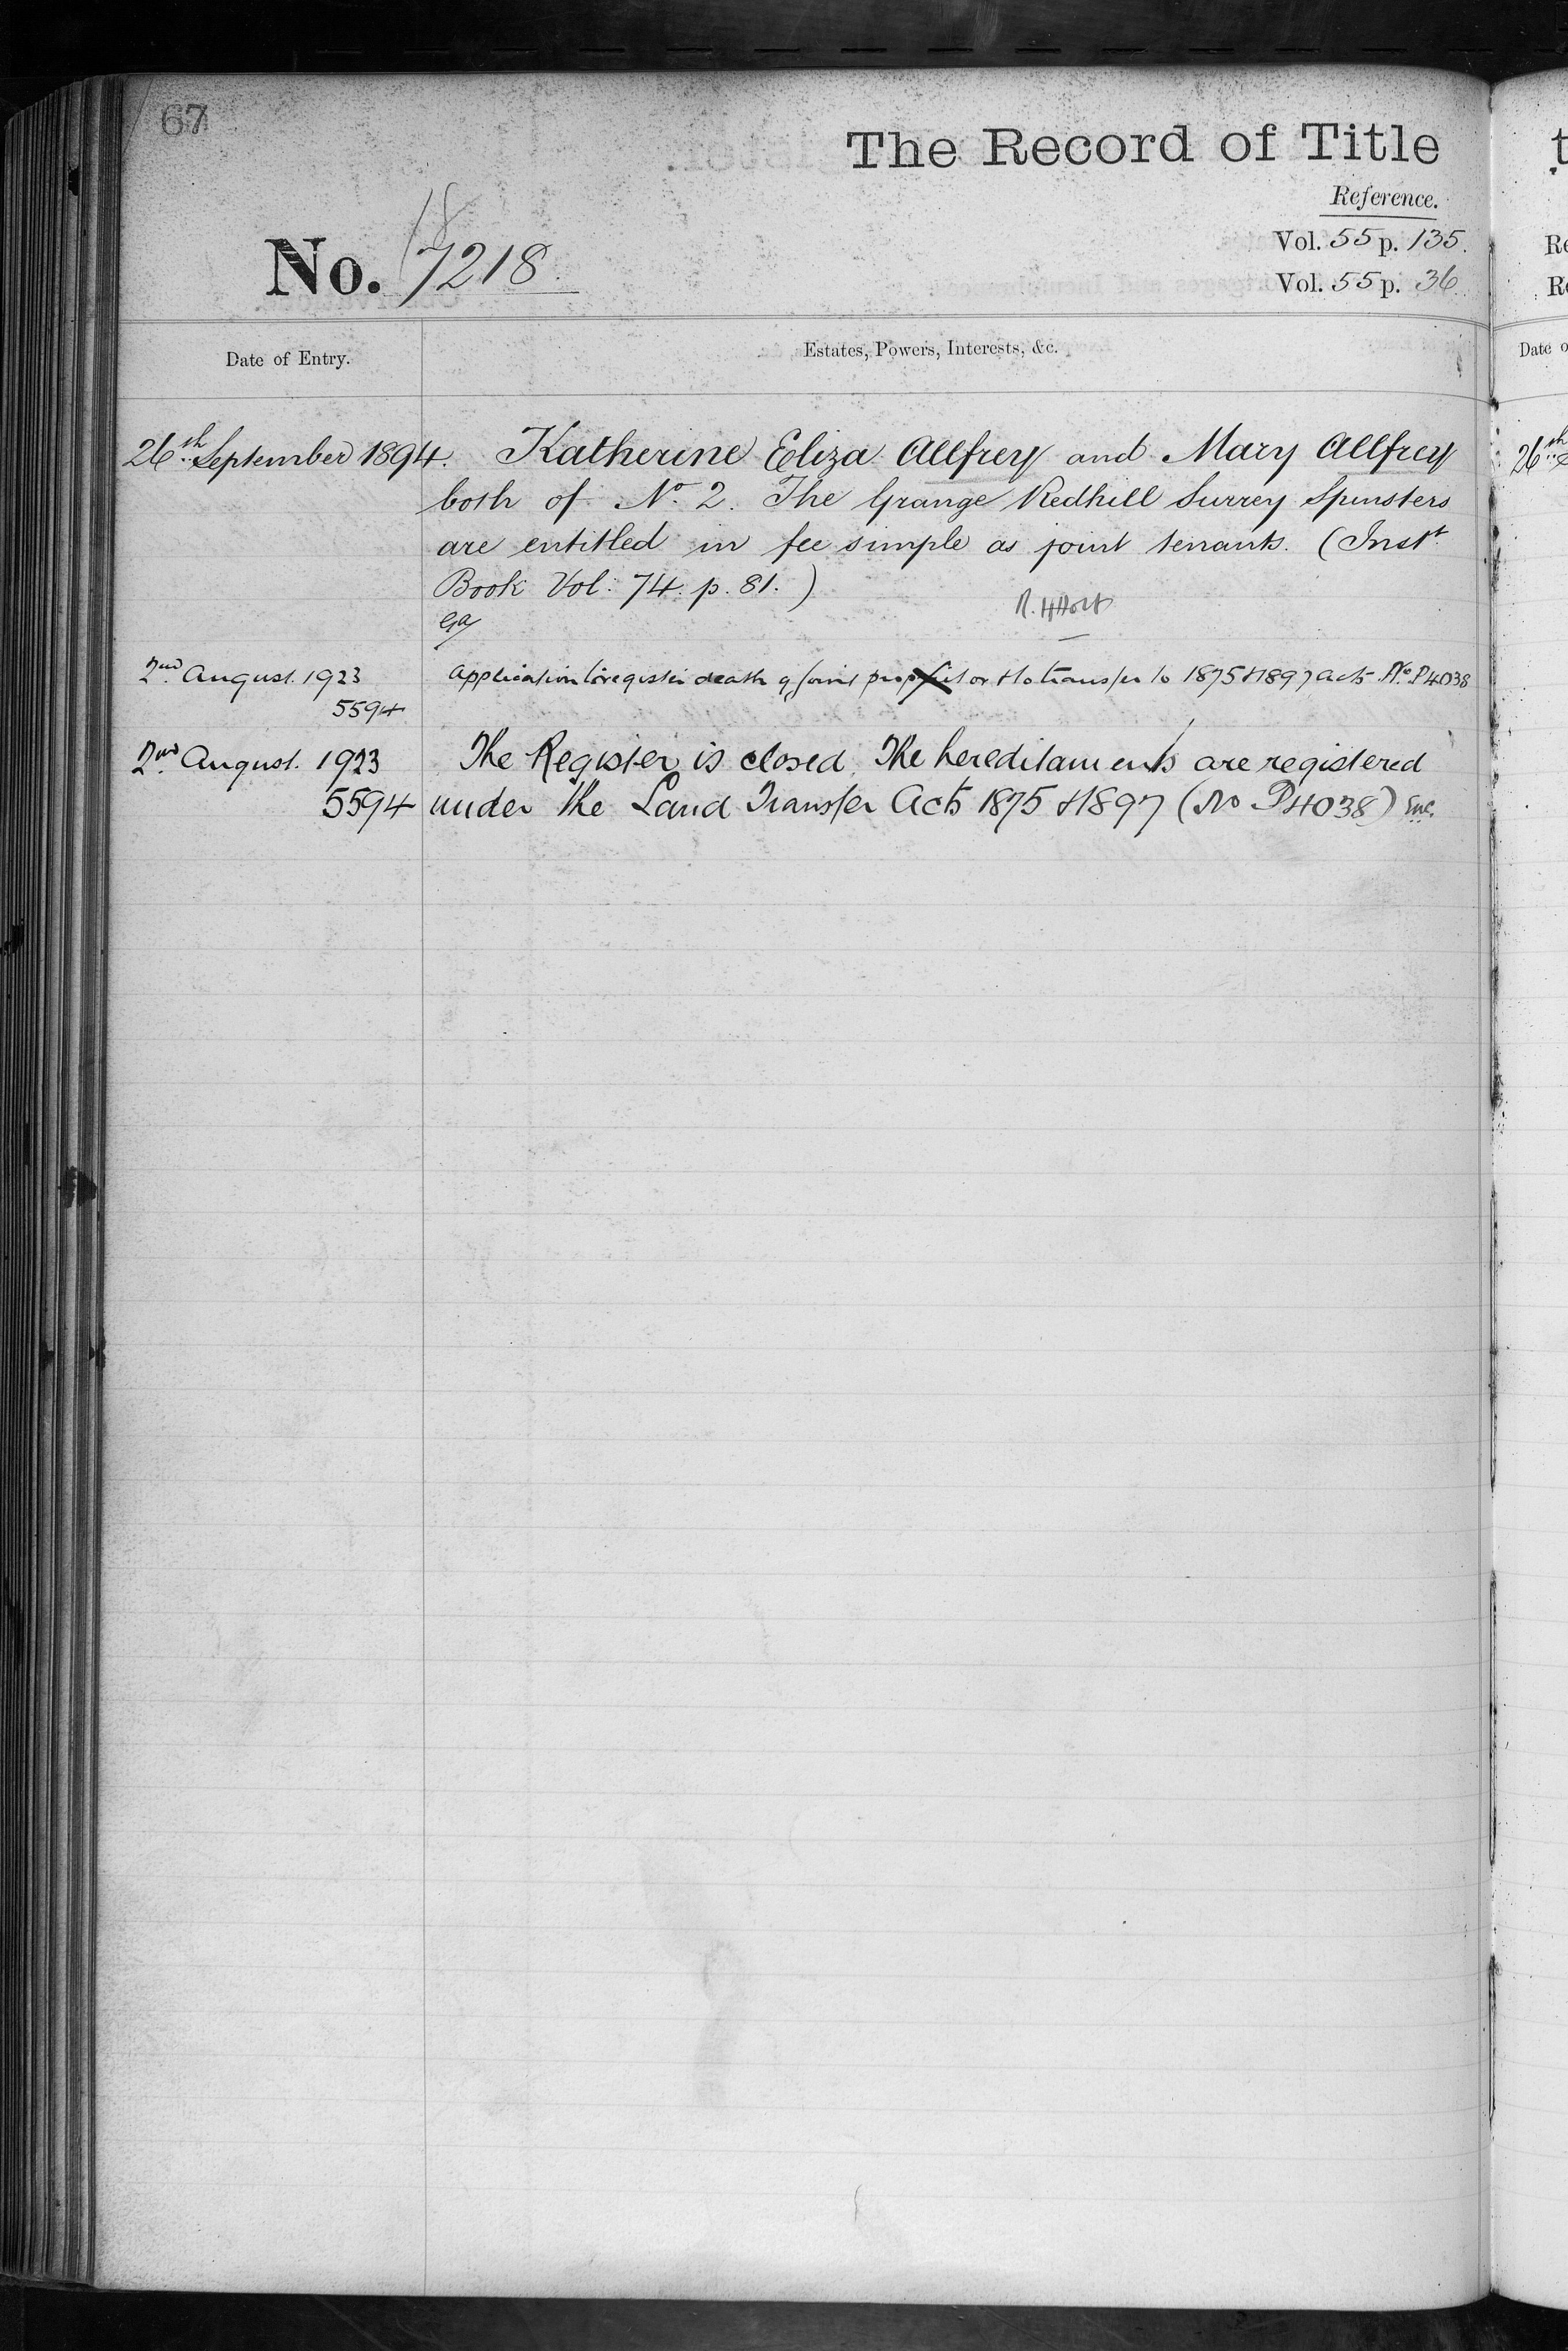 67
The Record of Title
Reference.
Vol. 55 p. 135.
Vol. 55 p. 36
18
No. 7218.
Date of Entry.
Estates, Powers, Interests, &c.
26th September 1894. Katherine Eliza Allfrey and Mary Allfrey
both of No. 2. The Grange Redhill Surrey Spinsters
are entitled in fee simple as joint tenants. (Instt
Book Vol: 74. p. 81.)
2nd August. 1923 Application to register death of joint proprietor & to transfer to 1875 & 1897 Acts. No. P4038
5594
2nd August. 1923 The Register is closed. The hereditaments are registered
5594 under the Land Transfer Acts 1875 & 1897 (No P4038)
Date o
26th